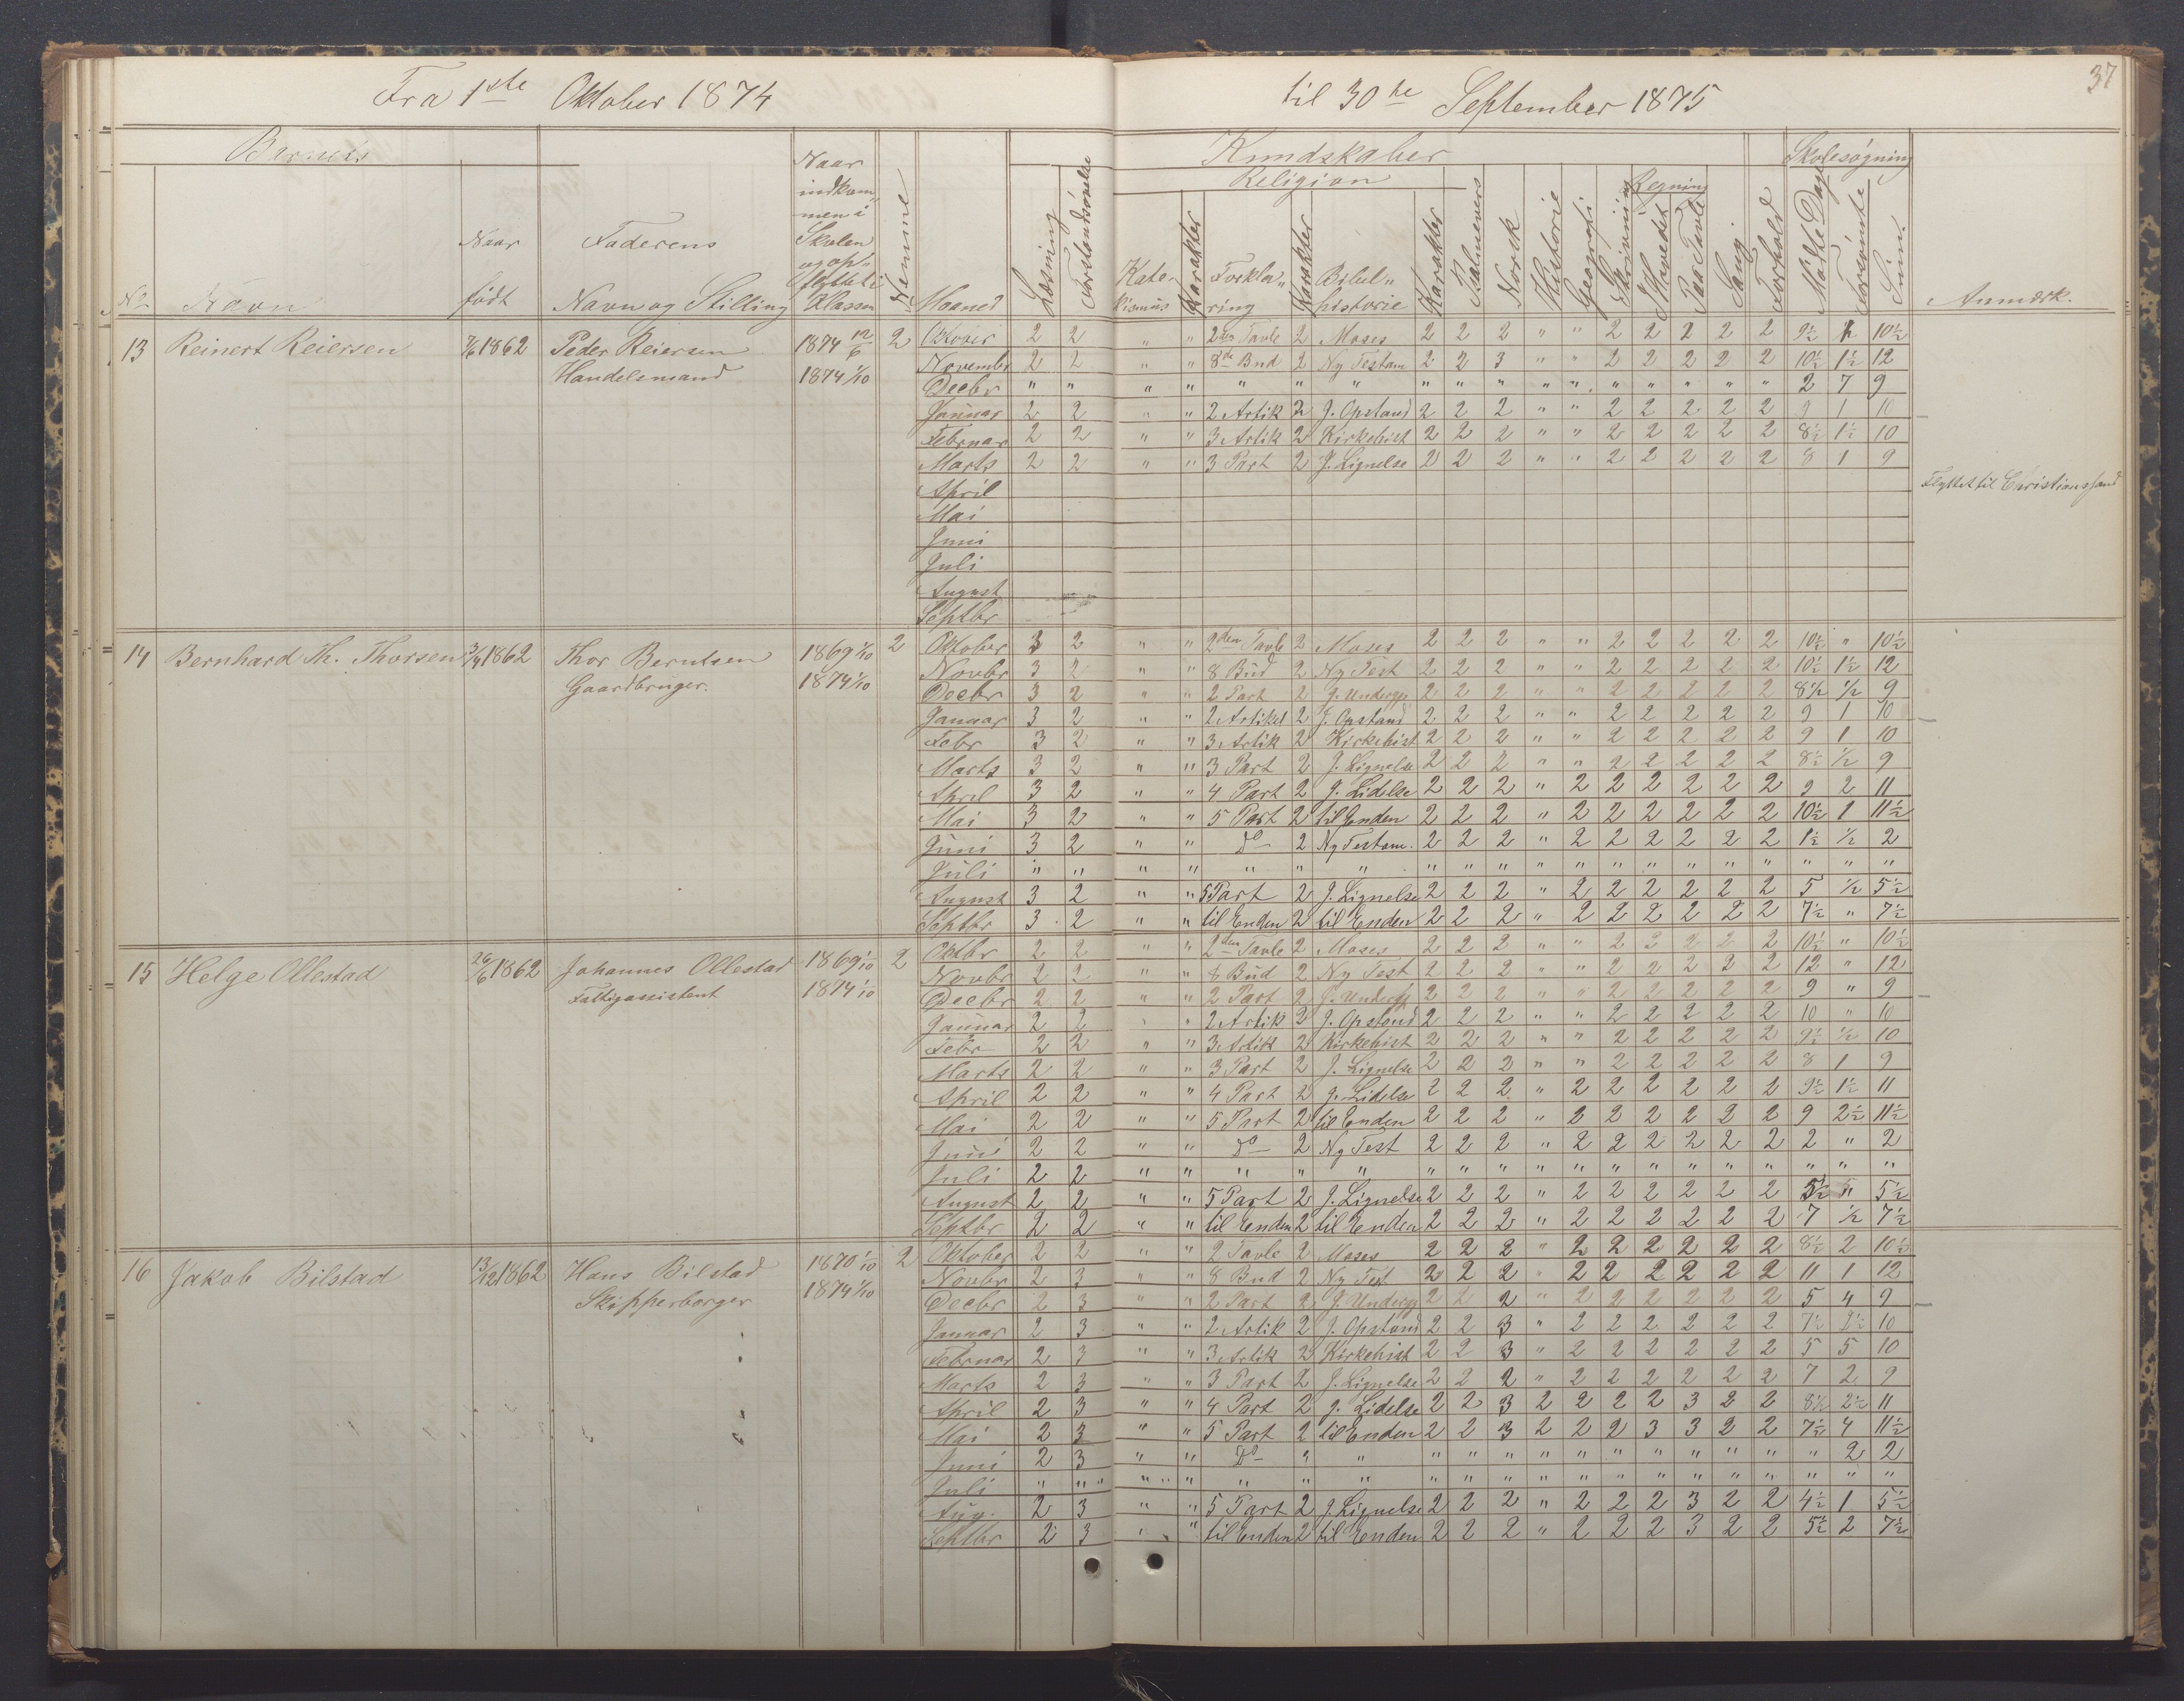 Fra 1ste Oktober 1874 til 30te September 1875 37
Barnets Kundskaber Skolesøgning
Religion Regning
No Navn Naar født Faderens Navn og Stilling Naar indkommen i Skolen og opflyttet i Klassen Nemme Maaned Læsning Forstandsøvelse Katekismus Karakter Forklaring Karakter Bibelhistorie Karakter Psalmevers Norsk Historie Geografi Skrivning Hovedet Paa Tavle Sang Forhold Mødte Dage Forsømte Sum Anmærk.
13 Reinert Reiersen 7/6 1862 Peder Reiersen 1874 12/6 2 Oktober 2 2 " " 2den Tavle 2 Moses 2 2 2 " " 2 2 2 2 2 9½ 1 10½
Handelsmand 1874 1/10 Novembr 2 2 " " 8de Bud 2 Ny Testam 2 2 3 " " 2 2 2 2 2 10½ 1½ 12
Decbr " " " " " " " " " " " " " " " " " 2 7 9
Januar 2 2 " " 2 Artik 2 J. Opstand 2 2 2 " " 2 2 2 2 2 9 1 10
Februar 2 2 " " 3 Artik 2 Kirkehist 2 2 2 " " 2 2 2 2 2 8½ 1½ 10
Marts 2 2 " " 3 Part 2 J. Lignelse 2 2 2 " " 2 2 2 2 2 8 1 9
April Flyttet til Christianssand
Mai
Juni
Juli
August
Septbr
14 Bernhard Th. Thorsen 3/4 1862 Thor Berntsen 1869 1/10 2 Oktober 3 2 " " 2den Tavle 2 Moses 2 2 2 " " 2 2 2 2 2 10½ " 10½
Gaardbruger. 1874 1/10 Novbr 3 2 " " 8 Bud 2 Ny Test 2 2 2 " " 2 2 2 2 2 10½ 1½ 12
Decbr 3 2 " " 2 Part 2 J. Underg 2 2 2 " " 2 2 2 2 2 8½ ½ 9
Januar 3 2 " " 2 Artikel 2 J. Opstand 2 2 2 " " 2 2 2 2 2 9 1 10
Febr 3 2 " " 3 Artik 2 Kirkehist 2 2 2 " " 2 2 2 2 2 9 1 10
Marts 3 2 " " 3 Part 2 J. Lignelse 2 2 2 " " 2 2 2 2 2 8½ ½ 9
April 3 2 " " 4 Part 2 J. Lidelse 2 2 2 " 2 2 2 2 2 2 9 2 11
Mai 3 2 " " 5 Part 2 til Enden 2 2 2 " 2 2 2 2 2 2 10½ 1 11½
Juni 3 2 " " Do 2 Ny Testam. 2 2 2 " 2 2 2 2 2 2 1½ ½ 2
Juli " " " " " " " " " " " " " " " " " " " "
August 3 2 " " 5 Part 2 J. Lignelse 2 2 2 " 2 2 2 2 2 2 5 ½ 5½
Septbr 3 2 " " til Enden 2 til Enden 2 2 2 " 2 2 2 2 2 2 7½ " 7½
15 Helge Ollestad 26/6 1862 Johannes Ollestad 1869 1/10 2 Oktbr 2 2 " " 2den Tavle 2 Moses 2 2 2 " " 2 2 2 2 2 10½ " 10½
Fattigassistent 1874 1/10 Novbr 2 2 " " 8 Bud 2 Ny Test 2 2 2 " " 2 2 2 2 2 12 " 12
Decbr 2 2 " " 2 Part 2 J. Underg 2 2 2 " " 2 2 2 2 2 9 " 9
Januar 2 2 " " 2 Artik 2 J. Opstand 2 2 2 " " 2 2 2 2 2 10 " 10
Febr 2 2 " " 3 Artik 2 Kirkehist 2 2 2 " " 2 2 2 2 2 9½ ½ 10
Marts 2 2 " " 3 Part 2 J. Lignelse 2 2 2 " " 2 2 2 2 2 8 1 9
April 2 2 " " 4 Part 2 J. Lidelse 2 2 2 " 2 2 2 2 2 2 9½ 1½ 11
Mai 2 2 " " 5 Part 2 til Enden 2 2 2 " 2 2 2 2 2 2 9 2½ 11½
Juni 2 2 " " Do 2 Ny Test 2 2 2 " 2 2 2 2 2 2 2 " 2
Juli 2 2 " " " " " " " " " " " " " " " " " "
August 2 2 " " 5 Part 2 J. Lignelse 2 2 2 " 2 2 2 2 2 2 5½ " 5½
Septbr 2 2 " " til Enden 2 til Enden 2 2 2 " 2 2 2 2 2 2 7 ½ 7½
16 Jakob Bilstad 13/12 1862 Hans Bilstad 1870 1/10 2 Oktober 2 2 " " 2 Tavle 2 Moses 2 2 2 " 2 2 2 2 2 2 8½ 2 10½
Skipperborger 1874 1/10 Novbr 2 3 " " 8 Bud 2 Ny Test 2 2 2 " 2 2 2 2 2 2 11 1 12
Decbr 2 3 " " 2 Part 2 J. Underg 2 2 2 " 2 2 2 2 2 2 5 4 9
Januar 2 3 " " 2 Artik 2 J. Opstand 2 2 3 " 2 2 2 2 2 2 7½ 2½ 10
Februar 2 3 " " 3 Artik 2 Kirkehist 2 2 3 " 2 2 2 2 2 2 5 5 10
Marts 2 3 " " 3 Part 2 J. Lignelse 2 2 2 " 2 2 2 2 2 2 7 2 9
April 2 3 " " 4 Part 2 J. Lidelse 2 2 3 2 2 2 2 3 2 2 8½ 2½ 11
Mai 2 3 " " 5 Part 2 til Enden 2 2 3 2 2 2 3 3 2 2 7½ 4 11½
Juni 2 3 " " Do " " " " " " " " " " " " " 2 2
Juli " " " " " " " " " " " " " " " " " " " "
Aug. 2 3 " " 5 Part 2 J. Lignelse 2 2 2 " 2 2 2 3 2 2 4½ 1 5½
Septbr 2 3 " " til Enden 2 til Enden 2 2 2 " 2 2 2 3 2 2 5½ 2 7½